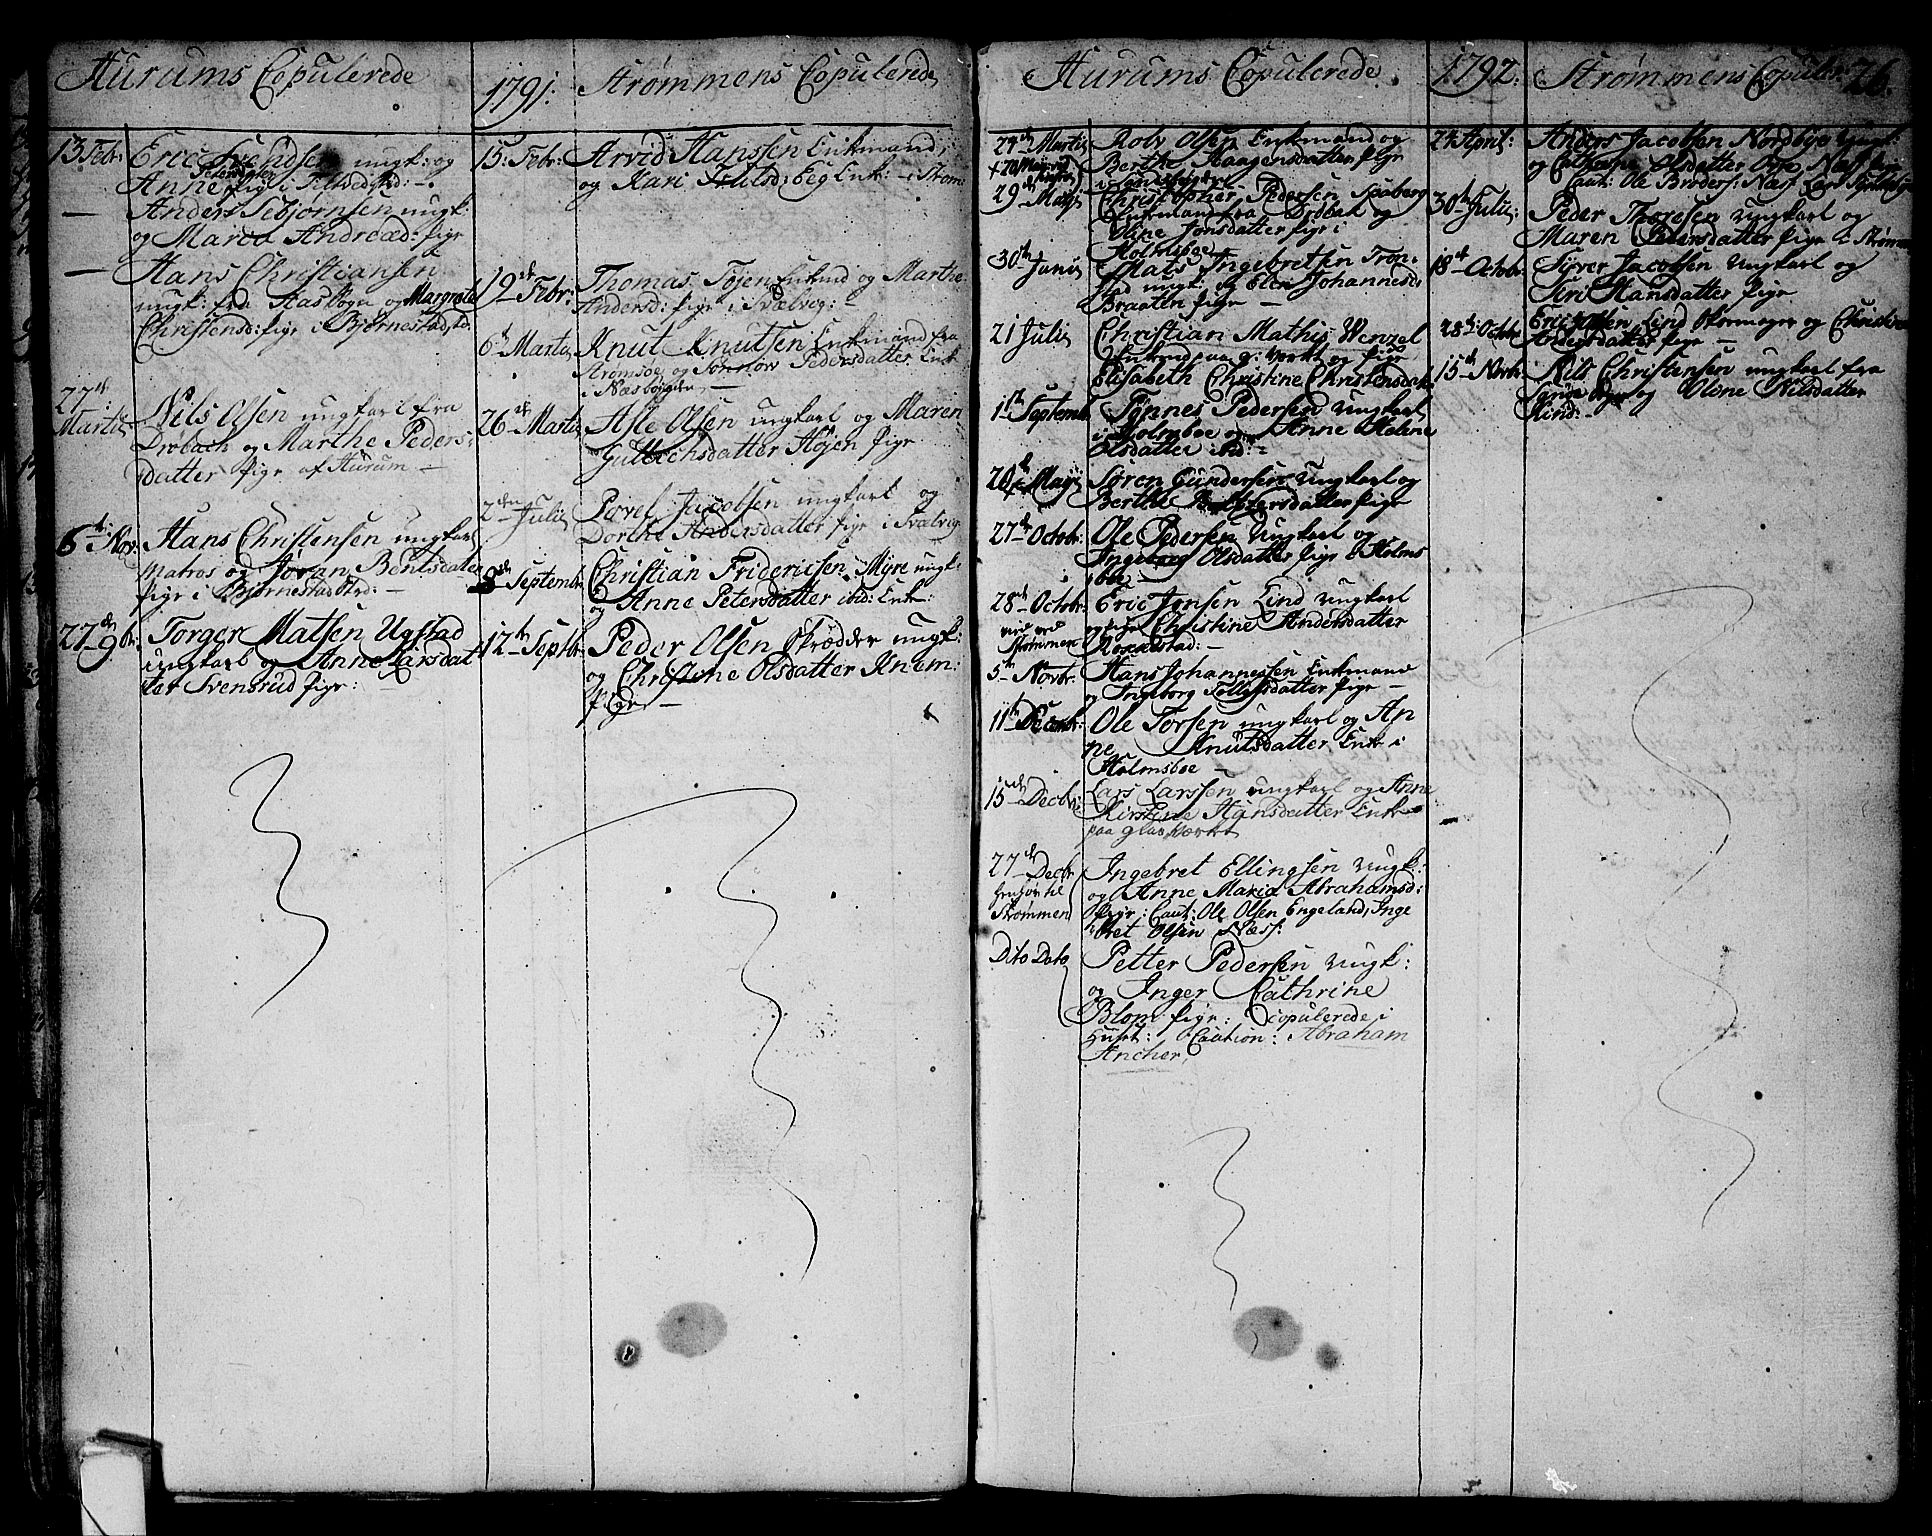 Hurums Copulerede
1791:
Strømmens Copulerede
13 Febr:
Eric Svendsen ungk: og
Anne Petersdatter pige i Tofteigstd: -
— Anders Sebjørnsen ungk:
og Maria Andreæd: pige
— Hans Christiansen
ungk: fra Aas Sogn og Margrete
Christensd: pige i Bjørnestadstd:
27de Martii
Nils Olsen ungkarl fra
Drøbach og Marthe Peders
datter pige af Hurum —
6te Nov:
Hans Christensen ungkarl
Matros og Jøran Bentsdatter
pige i Bjørnestad Strd: —
27de 9br:
Torger Matsen Ugstad
ungkarl og Anne Larsdat
ter Svensrud pige: —
15: Febr:
Arvid Hanssen Enkemand,
og Kari Eeg Enk: i Strøm
19de Febr:
Thomas Tøjen Enkmd og Marthe
Andersd: pige i Svælvig:
6te Martii
Knut Knutsen Enkemand fra
Strømsøe og Pedersdatter Enk
i Næsbøygden —
26de Martii
Asle Olsen ungkarl og Maren
Gulbrichsdatter Højen pige
2den Julii
Povel Jacobsen ungkarl og
Dorthe Andersdatter pige i Svælvig
8de Septembr:
Christian Fridericsen Myre ungk:
og Anne Petersdatter ibid: Enk:
12te Septbr:
Peder Olsen Skrædder ungk:
og Christine Olsdatter Knem:
pige —
Hurums Copulerede
1792:
Strømmens Copuler:
26.
Martii
Rolv Olsen Enkmand og
Berthe Haagensdatter pige
29de Maji
Christopher Pedersen
Enkmand fra Drøbak og
Oline Jonsdatter pige i
Holmsboe
30te Junii
Mats Ingebretsen Tron
stad ungk: og Elen Johannesd:
Braaten pige —
21 Julii
Christian Mathis Wenzel
Enkmd paa g: Verkt og pige
Elisabeth Christine Christensdatt
1te Septembr
Tønnes Pedersen ungkarl
i Holmsboe og Anne Helene
Olsdatter ibid: -
Maji
Søren Gundersen ungkarl og
Berthe pige
27de Octobr:
Ole Pedersen Ungkarl og
Ingeborg Olsdatter pige i Holms
boe —
28de Octobr:
vied ved
Strømmen
Eric Jonsen Lind ungkarl
og pige Christine Andersdatter
Rosenstad: —
5te Novbr:
Hans Johannessen Enkmand
og Ingeborg Tollefsdatter pige —
11te Decembr:
Ole Torsen ungkarl og An
ne Knutsdatter Enke i
Holmsboe —
15de Decbr:
Lars Larssen ungkarl og Anne
Kirstine Hansdatter Enke
paa glasverket
27de Decbr
henhør til
Strømmen
Ingebret Ellingsen ungk:
og Anne Maria Abrahamsd:
pige: Caut: Ole Olsen Engeland, Inge
bret Olsen Næss:
Dito Dato
Petter Pedersen ungk:
og Inger Cathrine
Blom pige: copulerede i
Huset: Caution: Abraham
Ancher,
24 April:
Anders Jacobsen Nordbye ungk:
og Olsdatter Næss pige
Caut: Ole Broders: Næss
30te Julii:
Peder Thoresen ungkarl og
Maren Petersdatter pige i Strømm
18de Octobr:
Syver Jacobsen ungkarl og
Siri Hansdatter pige
28de Octobr
Eric Lind og Christine
Andersdatter pige —
15de Novbr:
Nils Christansen ungkarl fra
og Olene Nilsdatter
Rind: —